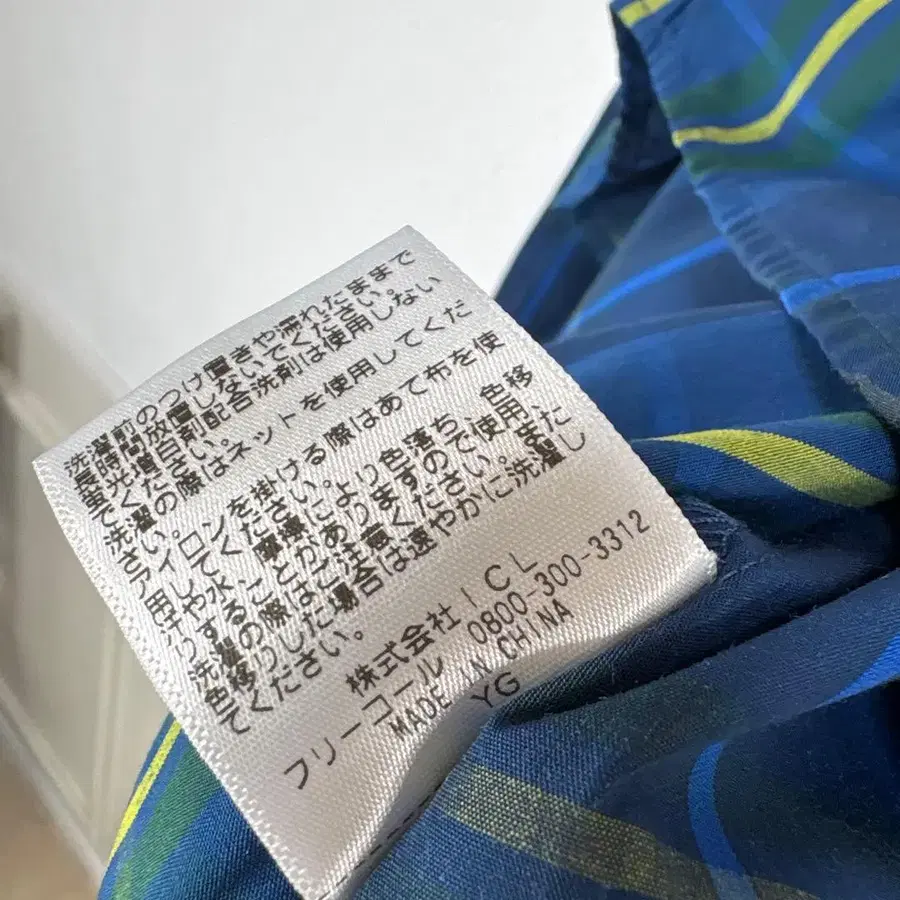 洗濯前のつけ置きや濡れたままで
長時間放置しないでください。
蛍光増白剤配合洗剤は使用しない
でください。
洗濯の際はネットを使用してくだ
さい。
アイロンを掛ける際はあて布を使
用してください。
汗や水、摩擦により色落ち、色移
りすることがありますので使用また
洗濯の際はご注意ください。
色移りした場合は速やかに洗濯し
てください。
株式会社 ICL
フリーコール 0800-300-3312
MADE IN CHINA
YG